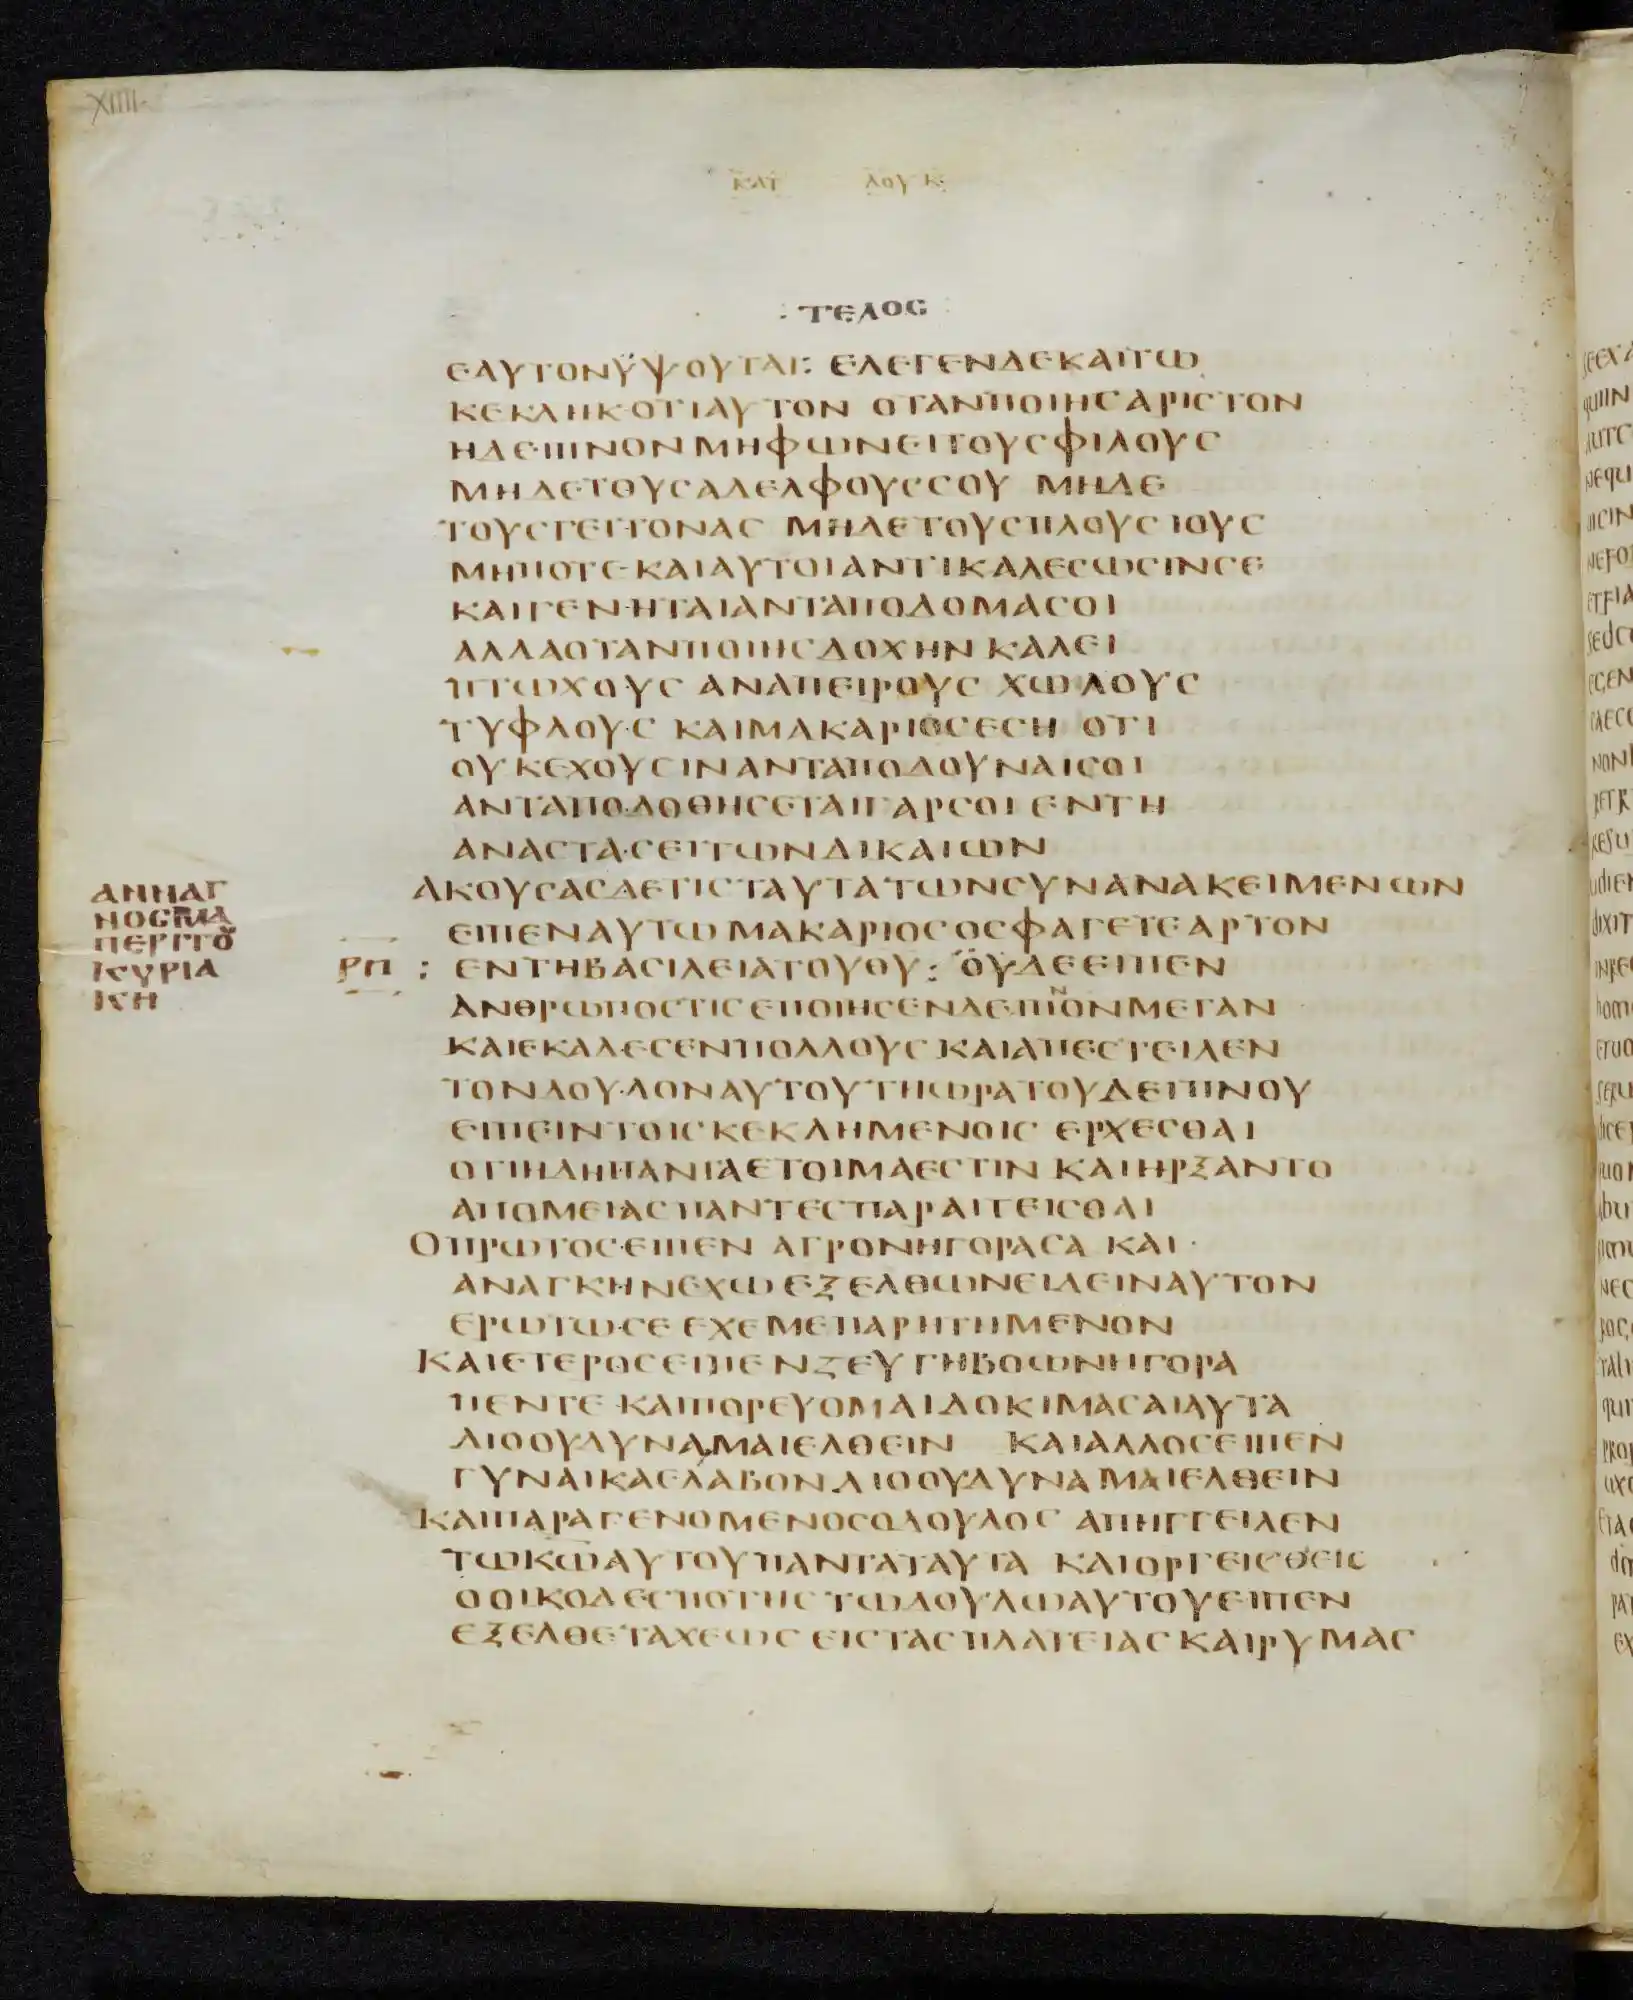 XIIII
ΚΑΤ ΛΟΥΚ
: ΤΕΛΟΣ :
ΕΑΥΤΟΝΫΨΟΥΤΑΙ: ΕΛΕΓΕΝΔΕΚΑΙΤΩ
ΚΕΚΛΗΚΟΤΙΑΥΤΟΝ ΟΤΑΝΠΟΙΗΣΑΡΙΣΤΟΝ
ΗΔΕΙΠΝΟΝΜΗΦΩΝΕΙΤΟΥΣΦΙΛΟΥΣ
ΜΗΔΕΤΟΥΣΑΔΕΛΦΟΥΣΣΟΥ ΜΗΔΕ
ΤΟΥΣΓΕΙΤΟΝΑΣ ΜΗΔΕΤΟΥΣΠΛΟΥΣΙΟΥΣ
ΜΗΠΟΤΕΚΑΙΑΥΤΟΙΑΝΤΙΚΑΛΕΣΩΣΙΝΣΕ
ΚΑΙΓΕΝΗΤΑΙΑΝΤΑΠΟΔΟΜΑΣΟΙ
ΑΛΛΑΟΤΑΝΠΟΙΗΣΔΟΧΗΝ ΚΑΛΕΙ
ΠΤΩΧΟΥΣ ΑΝΑΠΕΙΡΟΥΣ ΧΩΛΟΥΣ
ΤΥΦΛΟΥΣ ΚΑΙΜΑΚΑΡΙΟΣΕΣΗ ΟΤΙ
ΟΥΚΕΧΟΥΣΙΝΑΝΤΑΠΟΔΟΥΝΑΙΣΟΙ
ΑΝΤΑΠΟΔΟΘΗΣΕΤΑΙΓΑΡΣΟΙ ΕΝΤΗ
ΑΝΑΣΤΑΣΕΙΤΩΝΔΙΚΑΙΩΝ
ΑΝΝΑΓ
ΝΟΣΜΑ
ΠΕΡΙΤΟΥ
ΚΥΡΙΑ
ΚΗ
ΑΚΟΥΣΑΣΔΕΤΙΣΤΑΥΤΑΤΩΝΣΥΝΑΝΑΚΕΙΜΕΝΩΝ
ΕΙΠΕΝΑΥΤΩΜΑΚΑΡΙΟΣΟΣΦΑΓΕΤΕΑΡΤΟΝ
ΡΠ : ΕΝΤΗΒΑΣΙΛΕΙΑΤΟΥΘΥ: ΟΥΔΕΕΙΠΕΝ
ΑΝΘΡΩΠΟΣΤΙΣΕΠΟΙΗΣΕΝΔΕΙΠΝΟΝΜΕΓΑΝ
ΚΑΙΕΚΑΛΕΣΕΝΠΟΛΛΟΥΣΚΑΙΑΠΕΣΤΕΙΛΕΝ
ΤΟΝΔΟΥΛΟΝΑΥΤΟΥΤΗΩΡΑΤΟΥΔΕΙΠΝΟΥ
ΕΙΠΕΙΝΤΟΙΣΚΕΚΛΗΜΕΝΟΙΣ ΕΡΧΕΣΘΑΙ
ΟΤΙΗΔΗΠΑΝΤΑΕΤΟΙΜΑΕΣΤΙΝ ΚΑΙΗΡΞΑΝΤΟ
ΑΠΟΜΕΙΑΣΠΑΝΤΕΣΠΑΡΑΙΤΕΙΣΘΑΙ
ΟΠΡΩΤΟΣΕΙΠΕΝ ΑΓΡΟΝΗΓΟΡΑΣΑ ΚΑΙ·
ΑΝΑΓΚΗΝΕΧΩΕΞΕΛΘΩΝΕΙΔΕΙΝΑΥΤΟΝ
ΕΡΩΤΩΣΕ ΕΧΕΜΕΠΑΡΗΤΗΜΕΝΟΝ
ΚΑΙΕΤΕΡΟΣΕΙΠΕΝΖΕΥΓΗΒΟΩΝΗΓΟΡΑ
ΠΕΝΤΕ ΚΑΙΠΟΡΕΥΟΜΑΙΔΟΚΙΜΑΣΑΙΑΥΤΑ
ΔΙΟΟΥΔΥΝΑΜΑΙΕΛΘΕΙΝ ΚΑΙΑΛΛΟΣΕΙΠΕΝ
ΓΥΝΑΙΚΑΕΛΑΒΟΝΔΙΟΟΥΔΥΝΑΜΑΙΕΛΘΕΙΝ
ΚΑΙΠΑΡΑΓΕΝΟΜΕΝΟΣΟΔΟΥΛΟΣ ΑΠΗΓΓΕΙΛΕΝ
ΤΩΚΩΑΥΤΟΥΠΑΝΤΑΤΑΥΤΑ ΚΑΙΟΡΓΕΙΣΘΕΙΣ
ΟΟΙΚΟΔΕΣΠΟΤΗΣΤΩΔΟΥΛΩΑΥΤΟΥΕΙΠΕΝ
ΕΞΕΛΘΕΤΑΧΕΩΣ ΕΙΣΤΑΣΠΛΑΤΕΙΑΣΚΑΙΡΥΜΑΣ